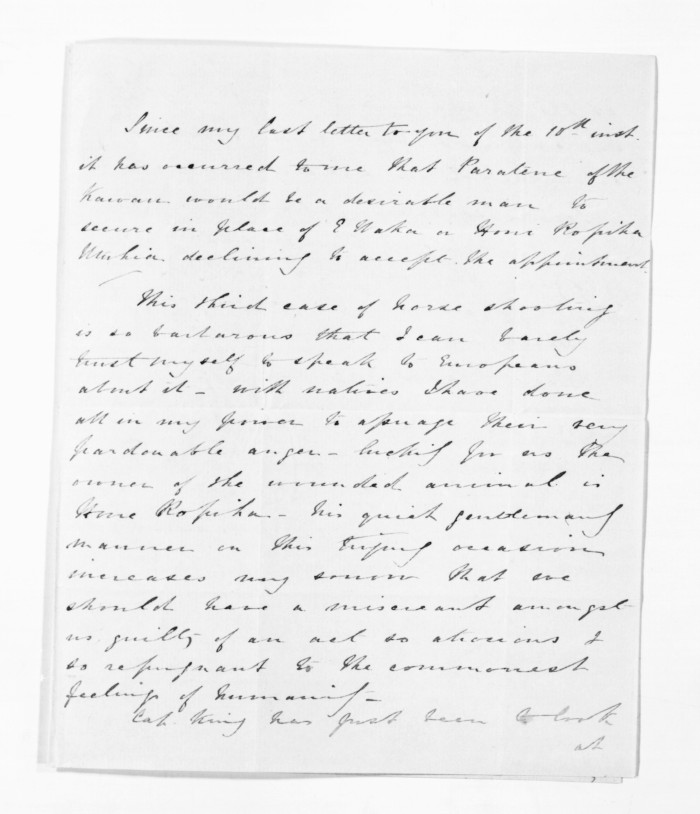 Since my last letter to you of the 10th inst.
it has occurred to me that Paratene of the
Kawau would be a desirable man to
secure in place of E Waka or Hone Ropiha
declining to accept the appointment.
This third case of horse shooting
is so barbarous that I can barely
trust myself to speak to Europeans
about it – with natives I have done
all in my power to assuage their very
pardonable anger – luckily for us the
owner of the wounded animal is
Hone Ropiha – his quiet gentlemanly
manner on this trying occasion
increases my sorrow that we
should have a miscreant amongst
us guilty of an act so atrocious &
so repugnant to the commonest
feelings of humanity –
Cap. King has just been to look
at